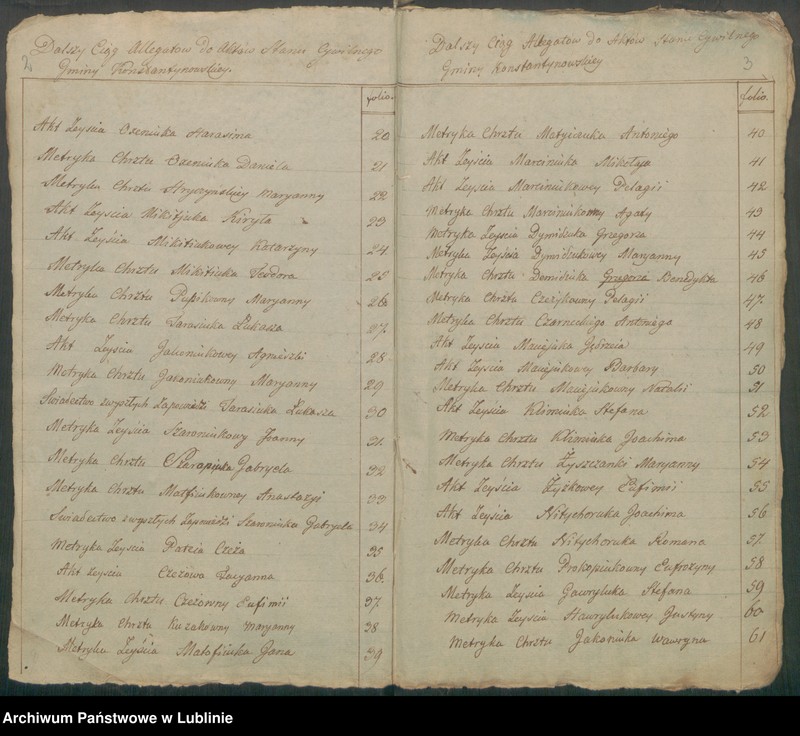 2
Dalszy Ciąg Allegatow Do Aktów Stanu Cywilnego
Gminy Konstantynowskiey.
folio.
Akt Zeyscia Osenińka Harasima 20
Metryka Chrztu Osenińka Daniela 21
Metryka Chrztu Maryanny 22
Akt Zeyscia Mikitjuka Kiryła 23
Akt Zeyścia Mikitiukowey Katarzyny 24
Metryka Chrztu Mikitiuka Teodora 25
Metryka Chrztu Maryanny 26
Metryka Chrztu Tarasiuka Łukasza 27
Akt Zeyścia Jakoniukowey Agnieszki 28
Metryka Chrztu Jakoniukowny Maryanny 29
Świadectwo zwyszłych Zapowiedzi Tarasiuka Łukasza 30
Metryka Zeyścia Szaroniukowy Joanny 31
Metryka Chrztu Gabryela 32
Metryka Chrztu Matfiukowney Anastazyi 33
Świadectwo zwyszłych Zapowiedzi Szaroniuka Gabryela 34
Metryka Zeyscia Czeża 35
Akt Zeyscia Czeżowa 36
Metryka Chrztu Czeżowny Eufimii 37
Metryka Chrztu Kuzakowny Maryanny 38
Metryka Zeyścia Matofińka Jana 39
Dalszy Ciąg Allegatow do Aktów Stanu Cywilnego
Gminy Konstantynowskiey
3
folio.
Metryka Chrztu Matyiczuka Antoniego 40
Akt Zeyścia Marciniuka Mikołaja 41
Akt Zeyścia Marciniukowey Pelagii 42
Metryka Chrztu Marciniukowny Agaty 43
Metryka Zeyscia Dymidiuka Grzegorza 44
Metryka Zeyścia Dymidiukowey Maryanny 45
Metryka Chrztu Demidiuka Grzegorza Benedykta 46
Metryka Chrztu Czeżykowny Pelagii 47
Metryka Chrztu Czarneckiego Antoniego 48
Akt Zeyscia Maciejuka 49
Akt Zeyścia Maciejukowey Barbary 50
Metryka Chrztu Maciejukowny Natalii 51
Akt Zeyścia Klimiuka Stefana 52
Metryka Chrztu Klimiuka Joachima 53
Metryka Chrztu Żyszczanki Maryanny 54
Akt Zeyścia Żyżkowey Eufimii 55
Akt Zeyścia Nitychoruka Joachima 56
Metryka Chrztu Nitychoruka Romana 57
Metryka Chrztu Prokopiukowny Eufrozyny 58
Metryka Zeyścia Gawryluka Stefana 59
Metryka Zeyścia Hawrylukowey Justyny 60
Metryka Chrztu Jakoniuka Wawryna 61
Archiwum Państwowe w Lublinie